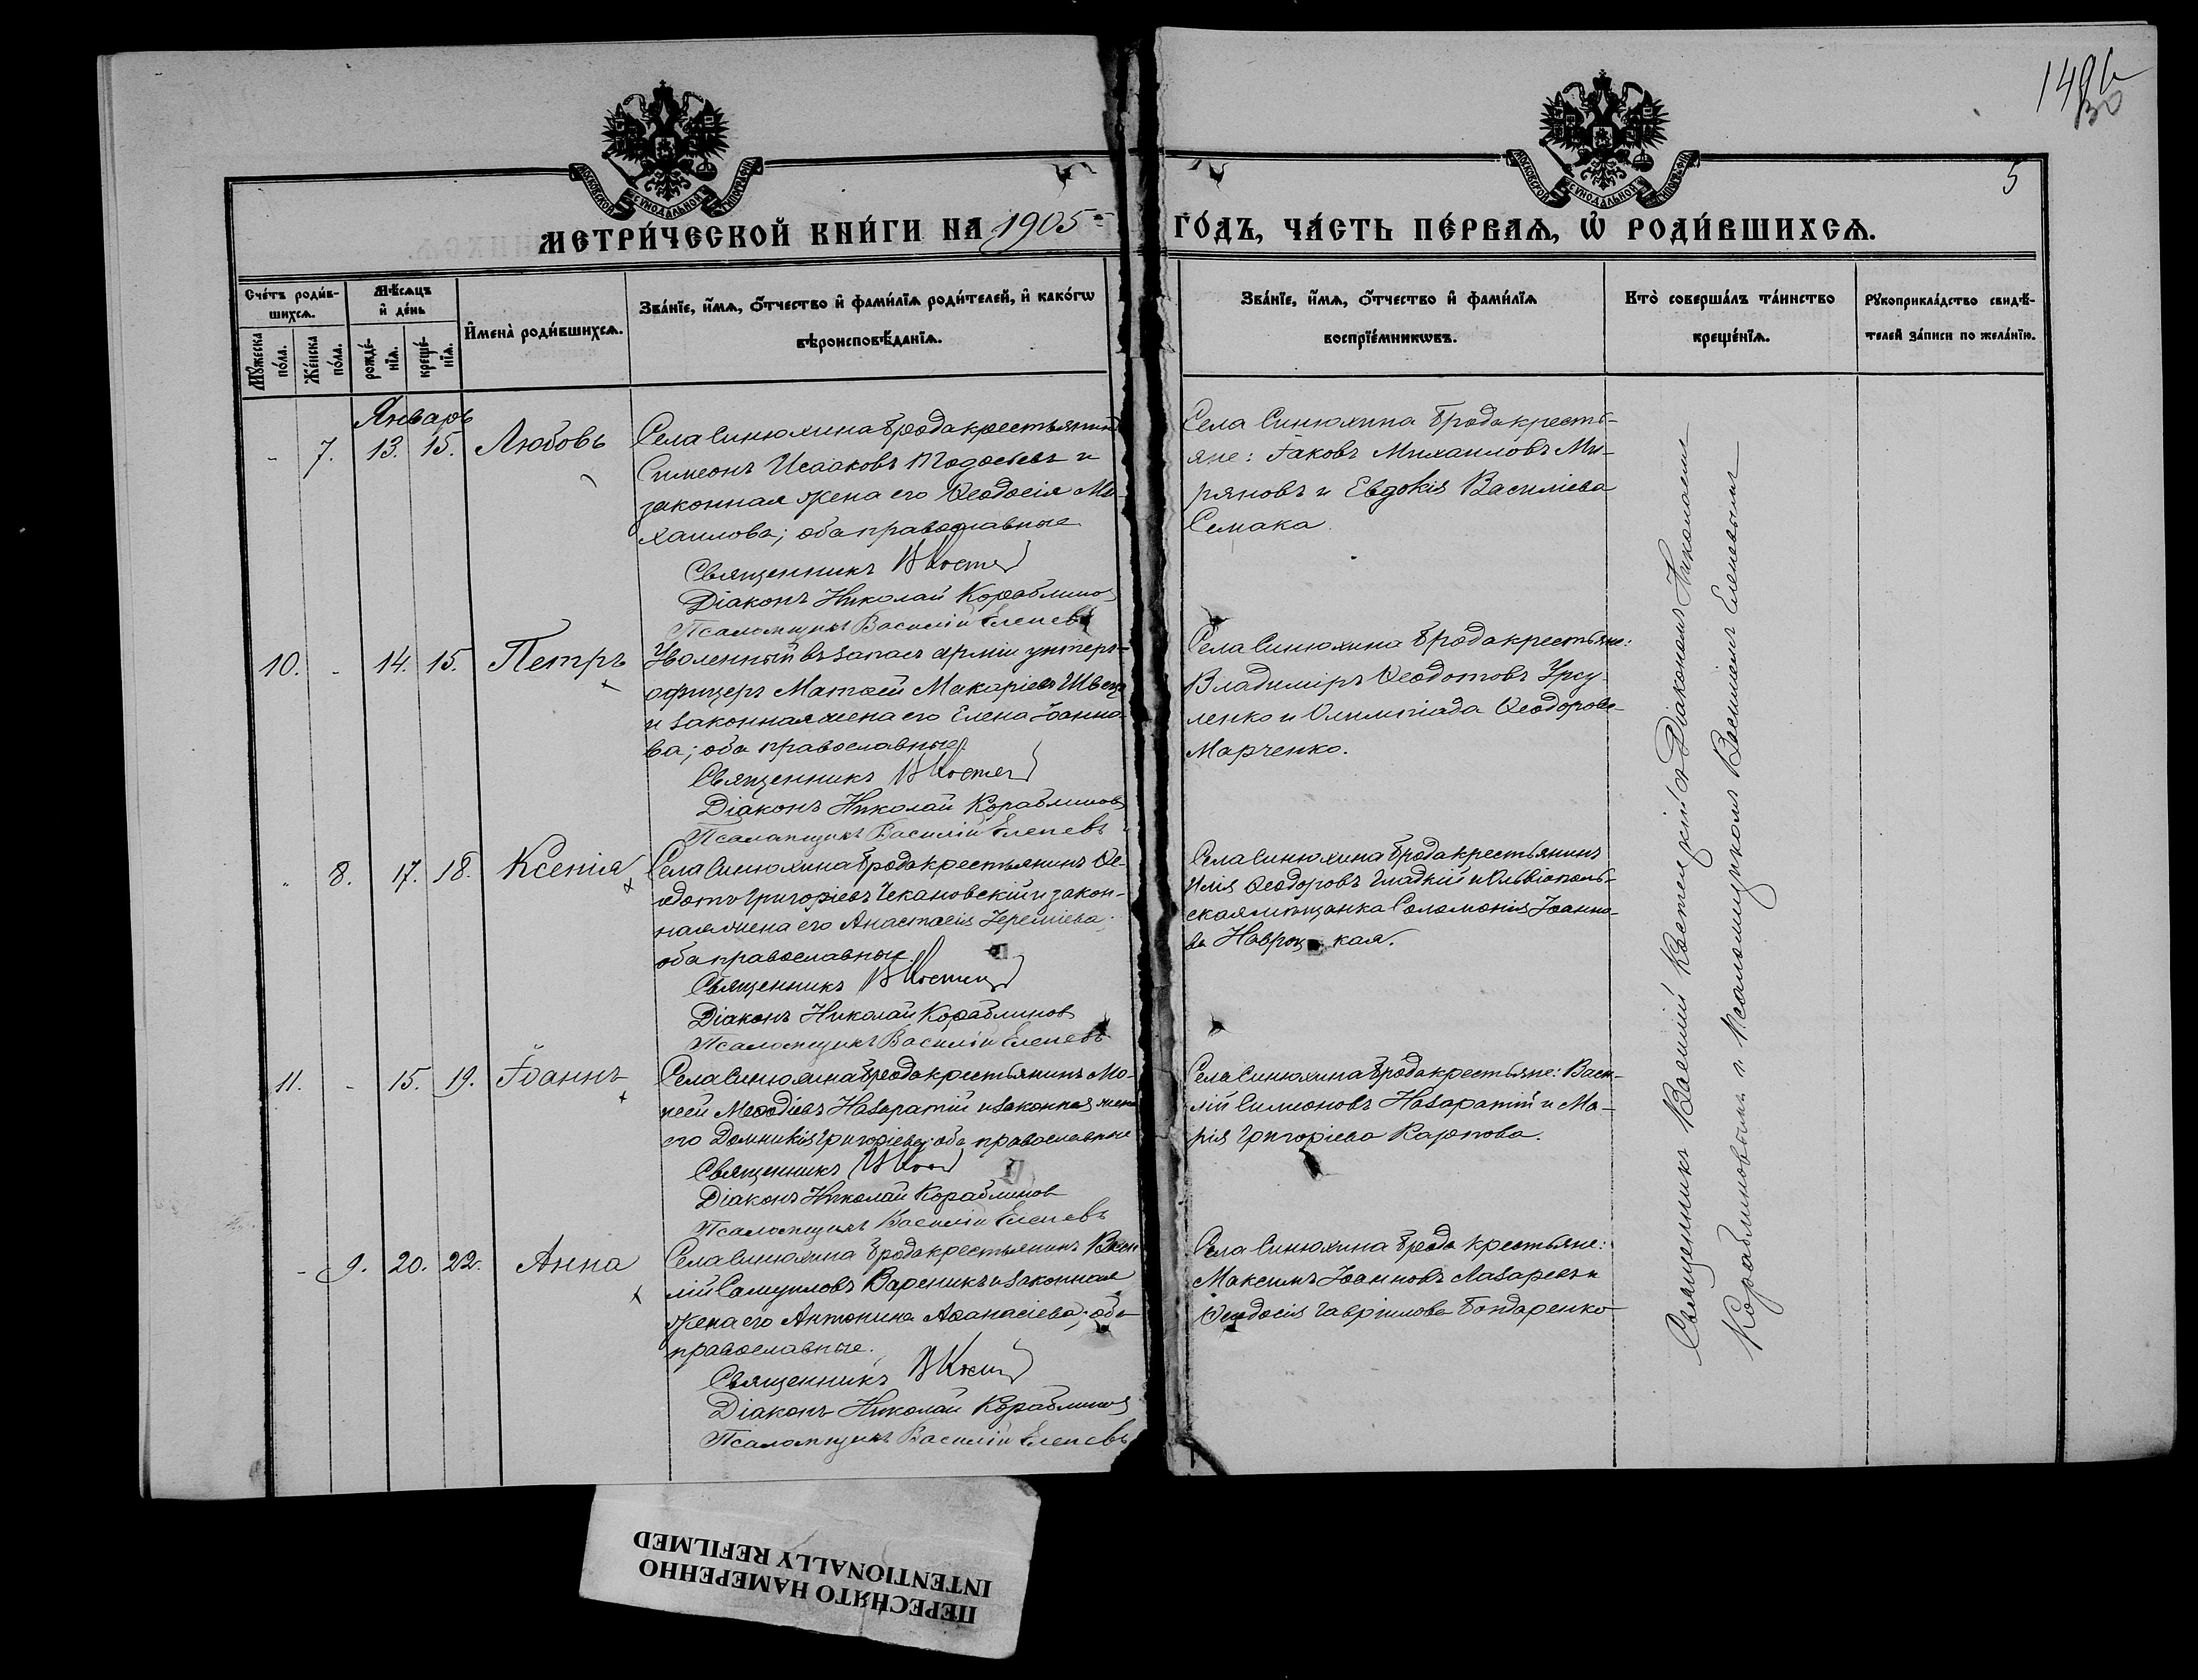 149
5
МОСКОВСКОЙ СѴНОДАЛЬНОЙ ТИПОГРАФІИ
МОСКОВСКОЙ СѴНОДАЛЬНОЙ ТИПОГРАФІИ
МЕТРИ́ЧЕСКОЙ КНИ́ГИ НА 1905 ГО́ДЪ, ЧА́СТЬ ПЕ́РВАѦ, Ѡ҆ РОДИ́ВШИХСѦ.
Сче́тъ роди́в-
шихсѧ.
Мꙋ́жеска
по́ла.
Же́нска
по́ла.
Мѣ́сѧцъ
и҆ де́нь
рожде́-
нїѧ.
креще́-
нїѧ.
И҆мена̀ роди́вшихсѧ.
Зва́нїе, и҆́мѧ, ѻ҆́тчество и҆ фамѝлїѧ роди́телей, и҆ како́гѡ
вѣроисповѣ́данїѧ.
Зва́нїе, и҆́мѧ, ѻ҆́тчество и҆ фамѝлїѧ
воспрїе́мникѡвъ.
Кто̀ соверша́лъ та́инство
креще́нїѧ.
Рꙋкоприкла́дство свидѣ́-
телей за́писи по жела́нїю.
Январь
7. 13. 15. Любовь
Села Синюхина Брода крестьянинъ
Симеонъ Исааковъ и
законная жена его Ѳеодосія Ми-
хаилова; оба православные
Священникъ
Діаконъ Николай Кораблинов
Псаломщикъ Василій Елепевъ
Села Синюхина Брода кресть-
яне: Іаковъ Михаиловъ Ми-
ряновъ и Евдокія Василіева
Семака.
10. - 14. 15. Петръ
Уволенный въ запасъ арміи унтеръ-
офицеръ Матѳей Макаріевъ Швецъ
и законная жена его Елена Іоанно-
ва; оба православные
Священникъ
Діаконъ Николай Кораблинов
Псаломщикъ Василій Елепевъ
Села Синюхина Брода крестьяне:
Владиміръ Ѳеодотовъ Урсу-
ленко и Олимпіада Ѳеодорова
Марченко.
8. 17. 18. Ксенія
Села Синюхина Брода крестьянинъ Ѳе-
одотъ Григоріевъ Чекановскій и закон-
ная жена его Анастасія Іереміева,
оба православные.
Священникъ
Діаконъ Николай Кораблинов
Псаломщикъ Василій Елепевъ
Села Синюхина Брода крестьянинъ
Илія Ѳеодоровъ Гладкій и Ольвіополь-
ская мѣщанка Соломонія Іоанно-
ва Навроцкая.
11. - 15. 19. Іоаннъ
Села Синюхина Брода крестьянинъ Мо-
исей Меѳодіевъ Назаратій и законная жена
его Домникія Григоріева; оба православные
Священникъ
Діаконъ Николай Кораблинов
Псаломщикъ Василій Елепевъ
Села Синюхина Брода крестьяне: Васи-
лій Симеоновъ Назаратій и Ма-
рія Григоріева Карпова.
- 9. 20. 22. Анна
Села Синюхина Брода крестьянинъ Васи
лій Самуиловъ Вареникъ и законная
жена его Антонина Аѳанасіева; оба
православные.
Священникъ
Діаконъ Николай Кораблинов
Псаломщикъ Василій Елепевъ
Села Синюхина Брода крестьяне:
Максимъ Іоанновъ Лазаревъ и
Ѳеодосія Гавріилова Бондаренко
Священникъ Василій Костецкій съ Діакономъ Николаемъ
Кораблиновымъ и Псаломщикомъ Василіемъ Елепевымъ
ПЕРЕСНЯТО НАМЕРЕННО
INTENTIONALLY REFILMED